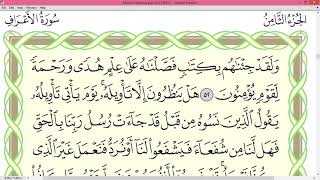 سُورَةُ الأَعۡرَافِ
الجُزۡءُ الثَّامِنُ
وَلَقَدۡ جِئۡنَٰهُم بِكِتَٰبٖ فَصَّلۡنَٰهُ عَلَىٰ عِلۡمٍ هُدٗى وَرَحۡمَةٗ
لِّقَوۡمٖ يُؤۡمِنُونَ ٥٢ هَلۡ يَنظُرُونَ إِلَّا تَأۡوِيلَهُۥۚ يَوۡمَ يَأۡتِي تَأۡوِيلُهُۥ
يَقُولُ ٱلَّذِينَ نَسُوهُ مِن قَبۡلُ قَدۡ جَآءَتۡ رُسُلُ رَبِّنَا بِٱلۡحَقِّ
فَهَل لَّنَا مِن شُفَعَآءَ فَيَشۡفَعُواْ لَنَآ أَوۡ نُرَدُّ فَنَعۡمَلَ غَيۡرَ ٱلَّذِي